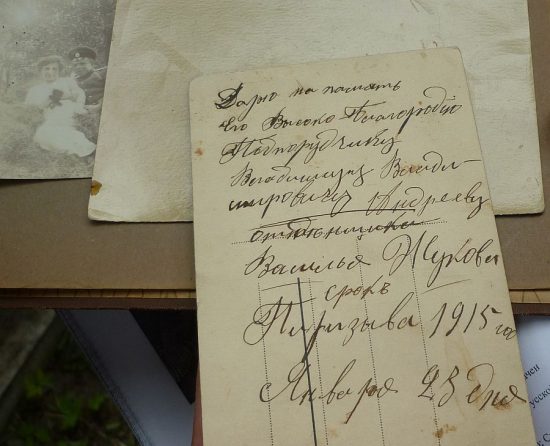 Дарю на память
Его Высоко Благородию
Подпоручику
Владимиру Влади-
мировичу Андрееву
Василья Жукова
срокъ
Призыва 1915 го
Января 23 дня
чен
усско